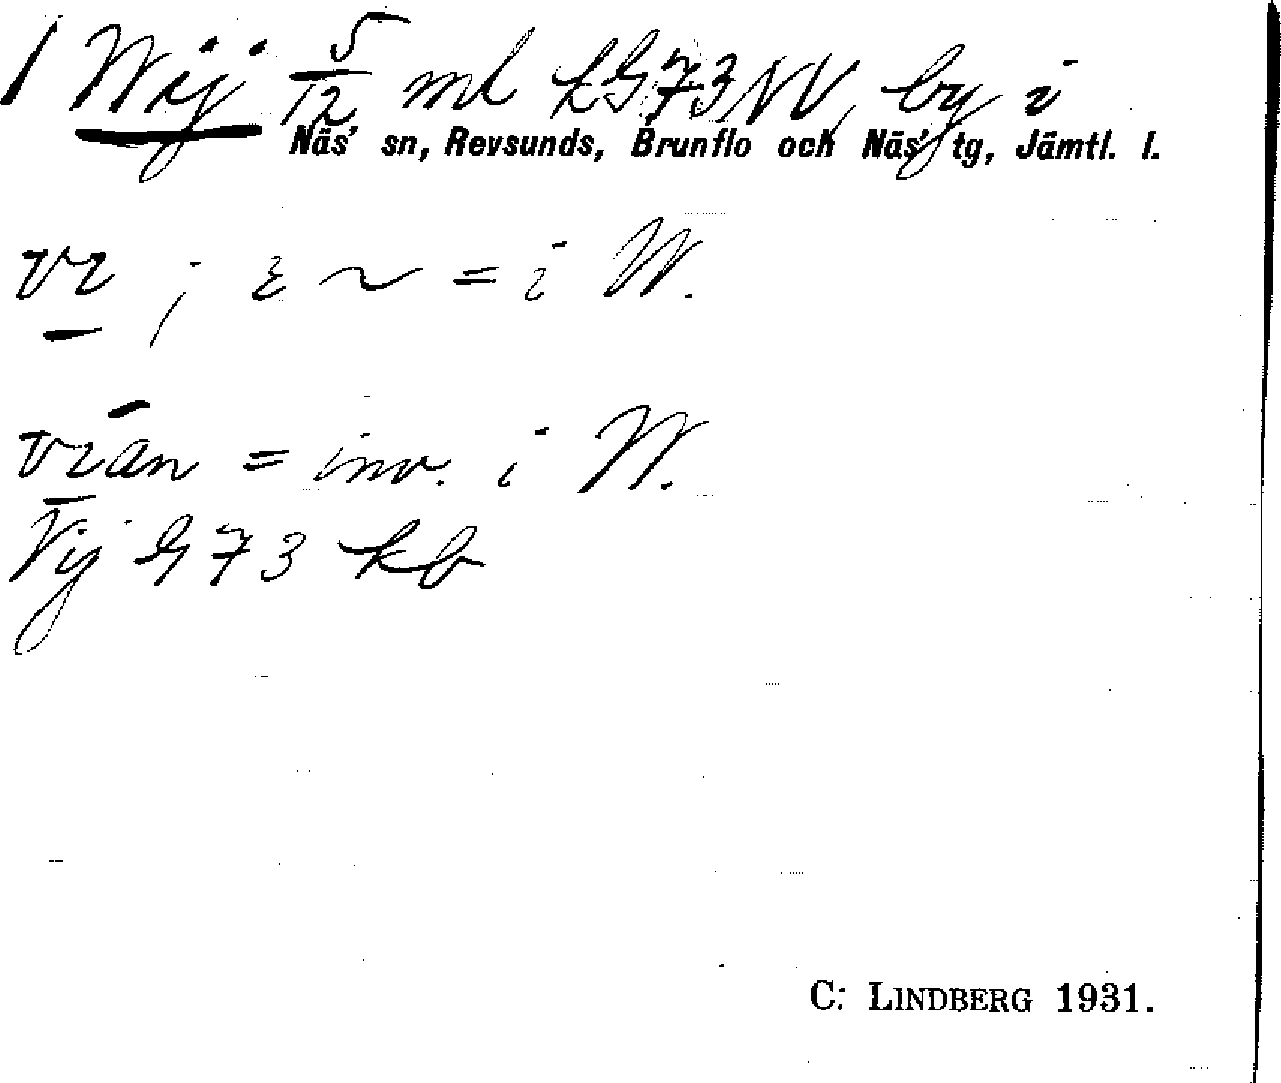 1 Wij 5/12 ml kG73NV, by i
Näs' sn, Revsunds, Brunflo och Näs' tg, Jämtl. l.
vı ; ɛ ~ = i W.
vıan = inv. i W.
Vij G73 kb
C: LINDBERG 1931.